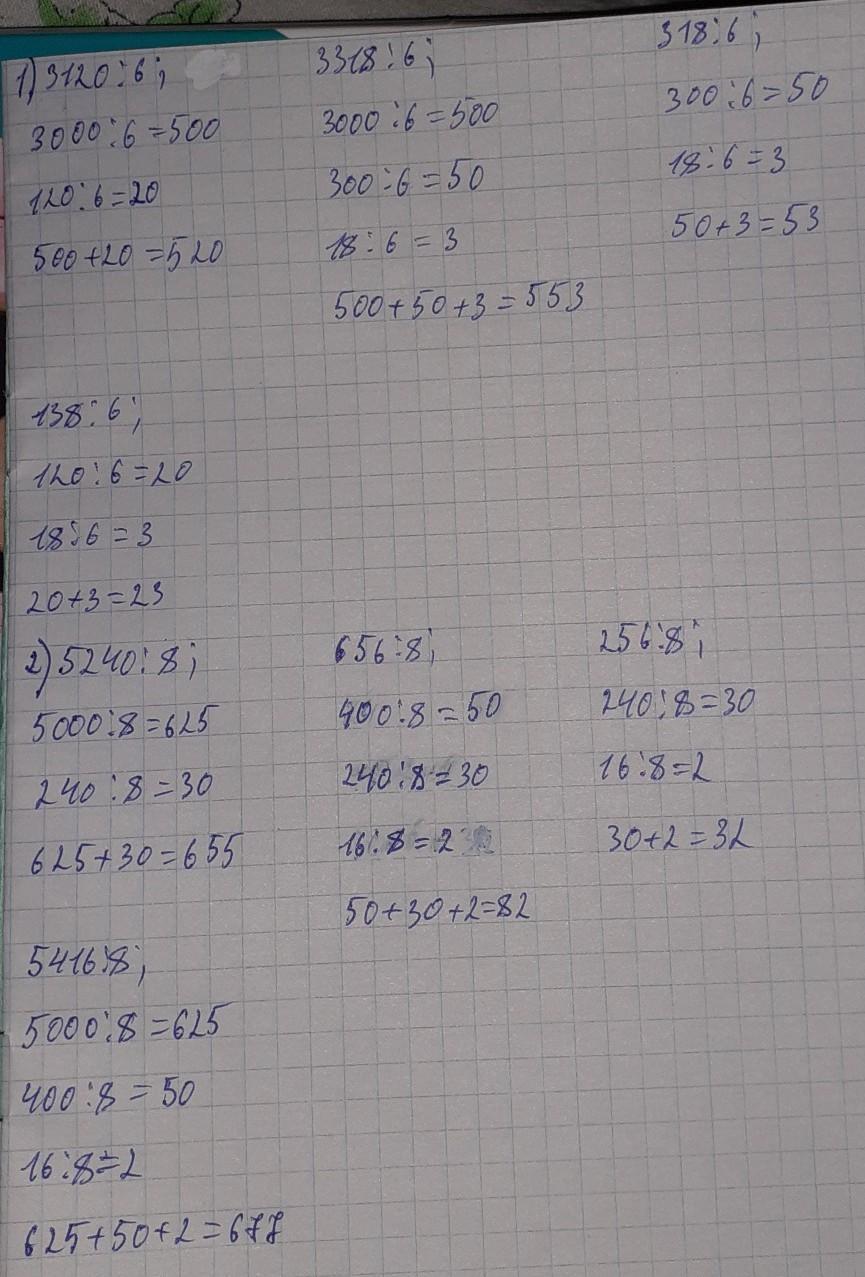 1) 3120:6;
3000:6=500
120:6=20
500+20=520
3318:6;
3000:6=500
300:6=50
18:6=3
500+50+3=553
318:6;
300:6=50
18:6=3
50+3=53
138:6;
120:6=20
18:6=3
20+3=23
2) 5240:8;
5000:8=625
240:8=30
625+30=655
656:8;
400:8=50
240:8=30
16:8=2
50+30+2=82
256:8;
240:8=30
16:8=2
30+2=32
5416:8;
5000:8=625
400:8=50
16:8=2
625+50+2=677